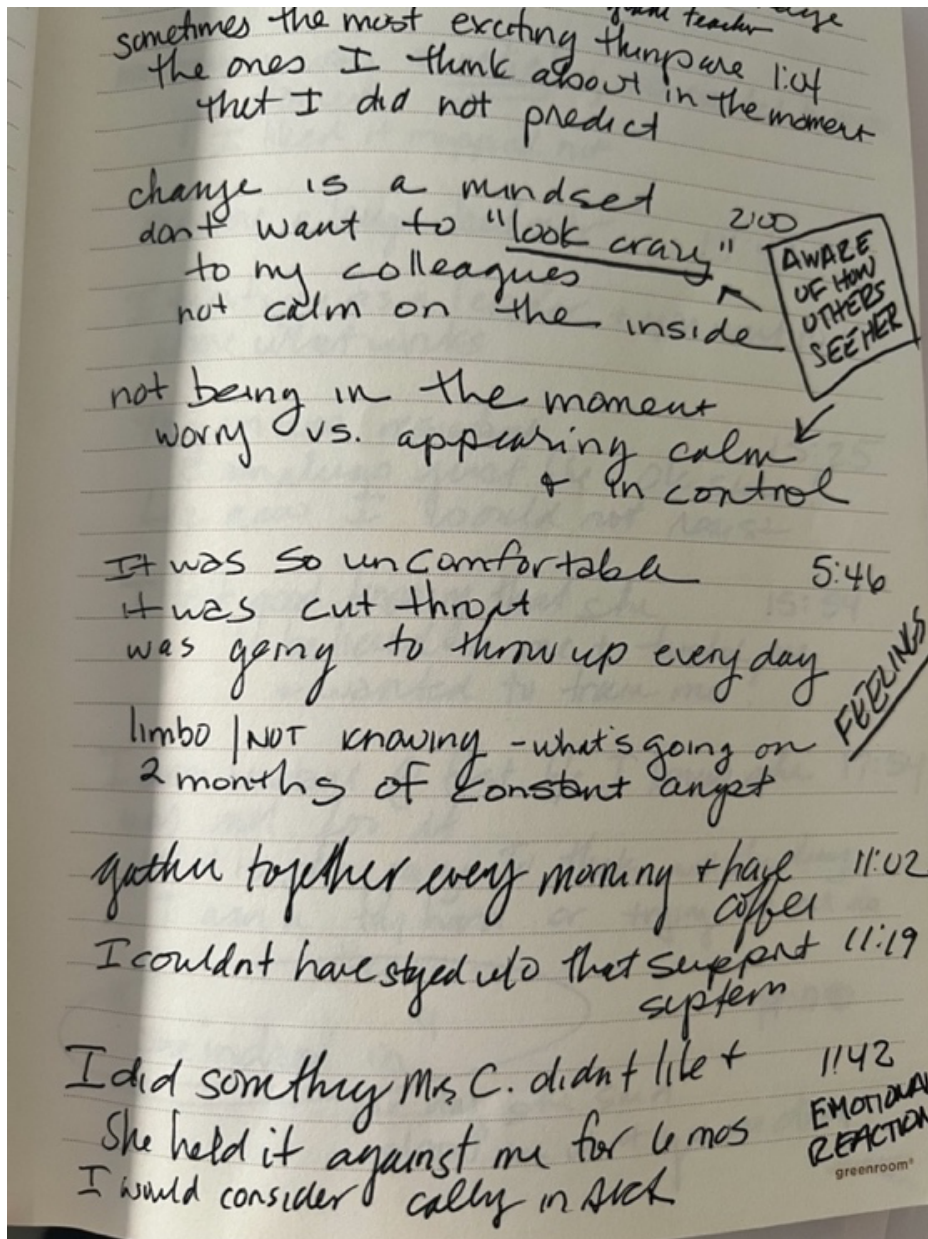 teacher
sometimes the most exciting things are 1:04
the ones I think about in the moment
that I did not predict
change is a mindset
don't want to "look crazy" 2:00
to my colleagues
not calm on the inside
AWARE
OF HOW
OTHERS
SEE HER
not being in the moment
worry vs. appearing calm
& in control
It was so uncomfortable 5:46
it was cut throat
was going to throw up every day
FEELINGS
limbo | NOT knowing - what's going on
2 months of constant angst
gather together every morning + have 11:02
coffee
I couldnt have stayed w/o that support 11:19
system
I did something Mrs C. didnt like + 11:42
She held it against me for 6 mos
EMOTIONAL
REACTION
I would consider calling in sick
greenroom®